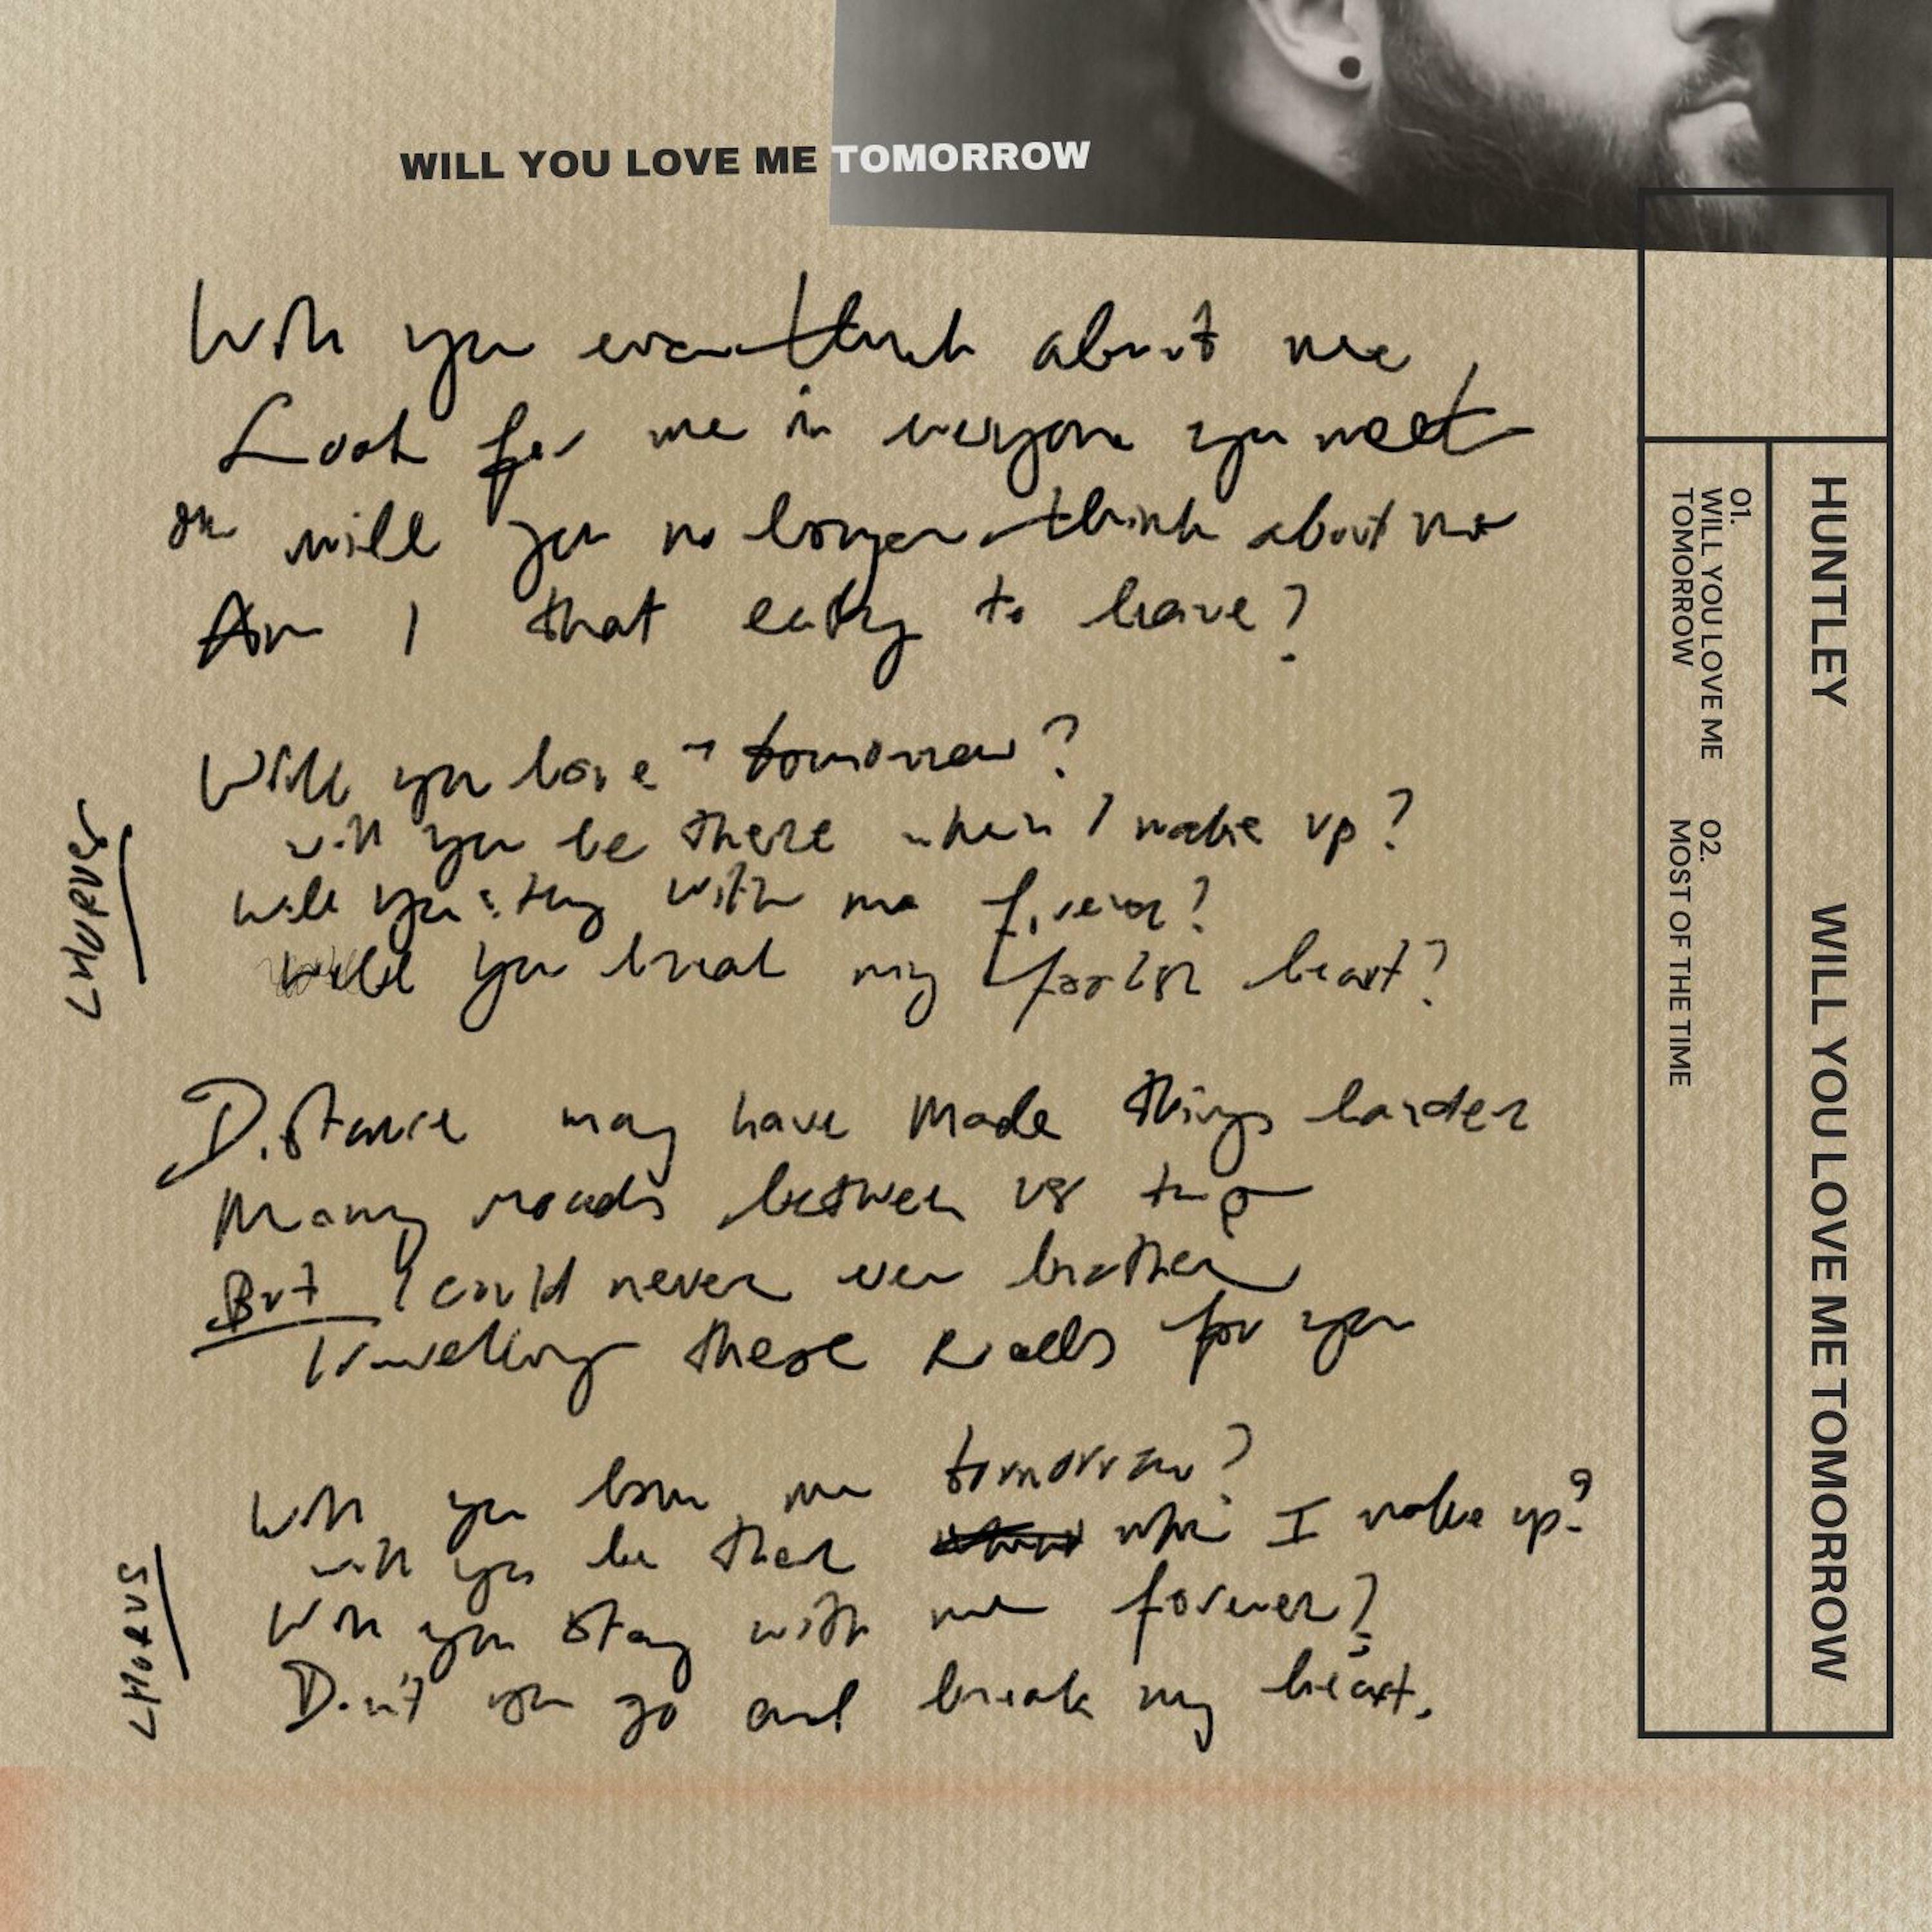 WILL YOU LOVE ME TOMORROW
Will you even think about me
Look for me in everyone you meet
or will you no longer think about me
Am I that easy to leave?
CHORUS
Will you love tomorrow?
will you be there when I wake up?
will you stay with me forever?
Will you break my foolish heart?
Distance may have made things harder
Many roads between us two
But I could never ever bother
Travelling these roads for you
CHORUS
Will you love me tomorrow?
will you be there when I wake up?
Will you stay with me forever?
Don't you go and break my heart.
HUNTLEY WILL YOU LOVE ME TOMORROW
01.
WILL YOU LOVE ME
TOMORROW
02.
MOST OF THE TIME